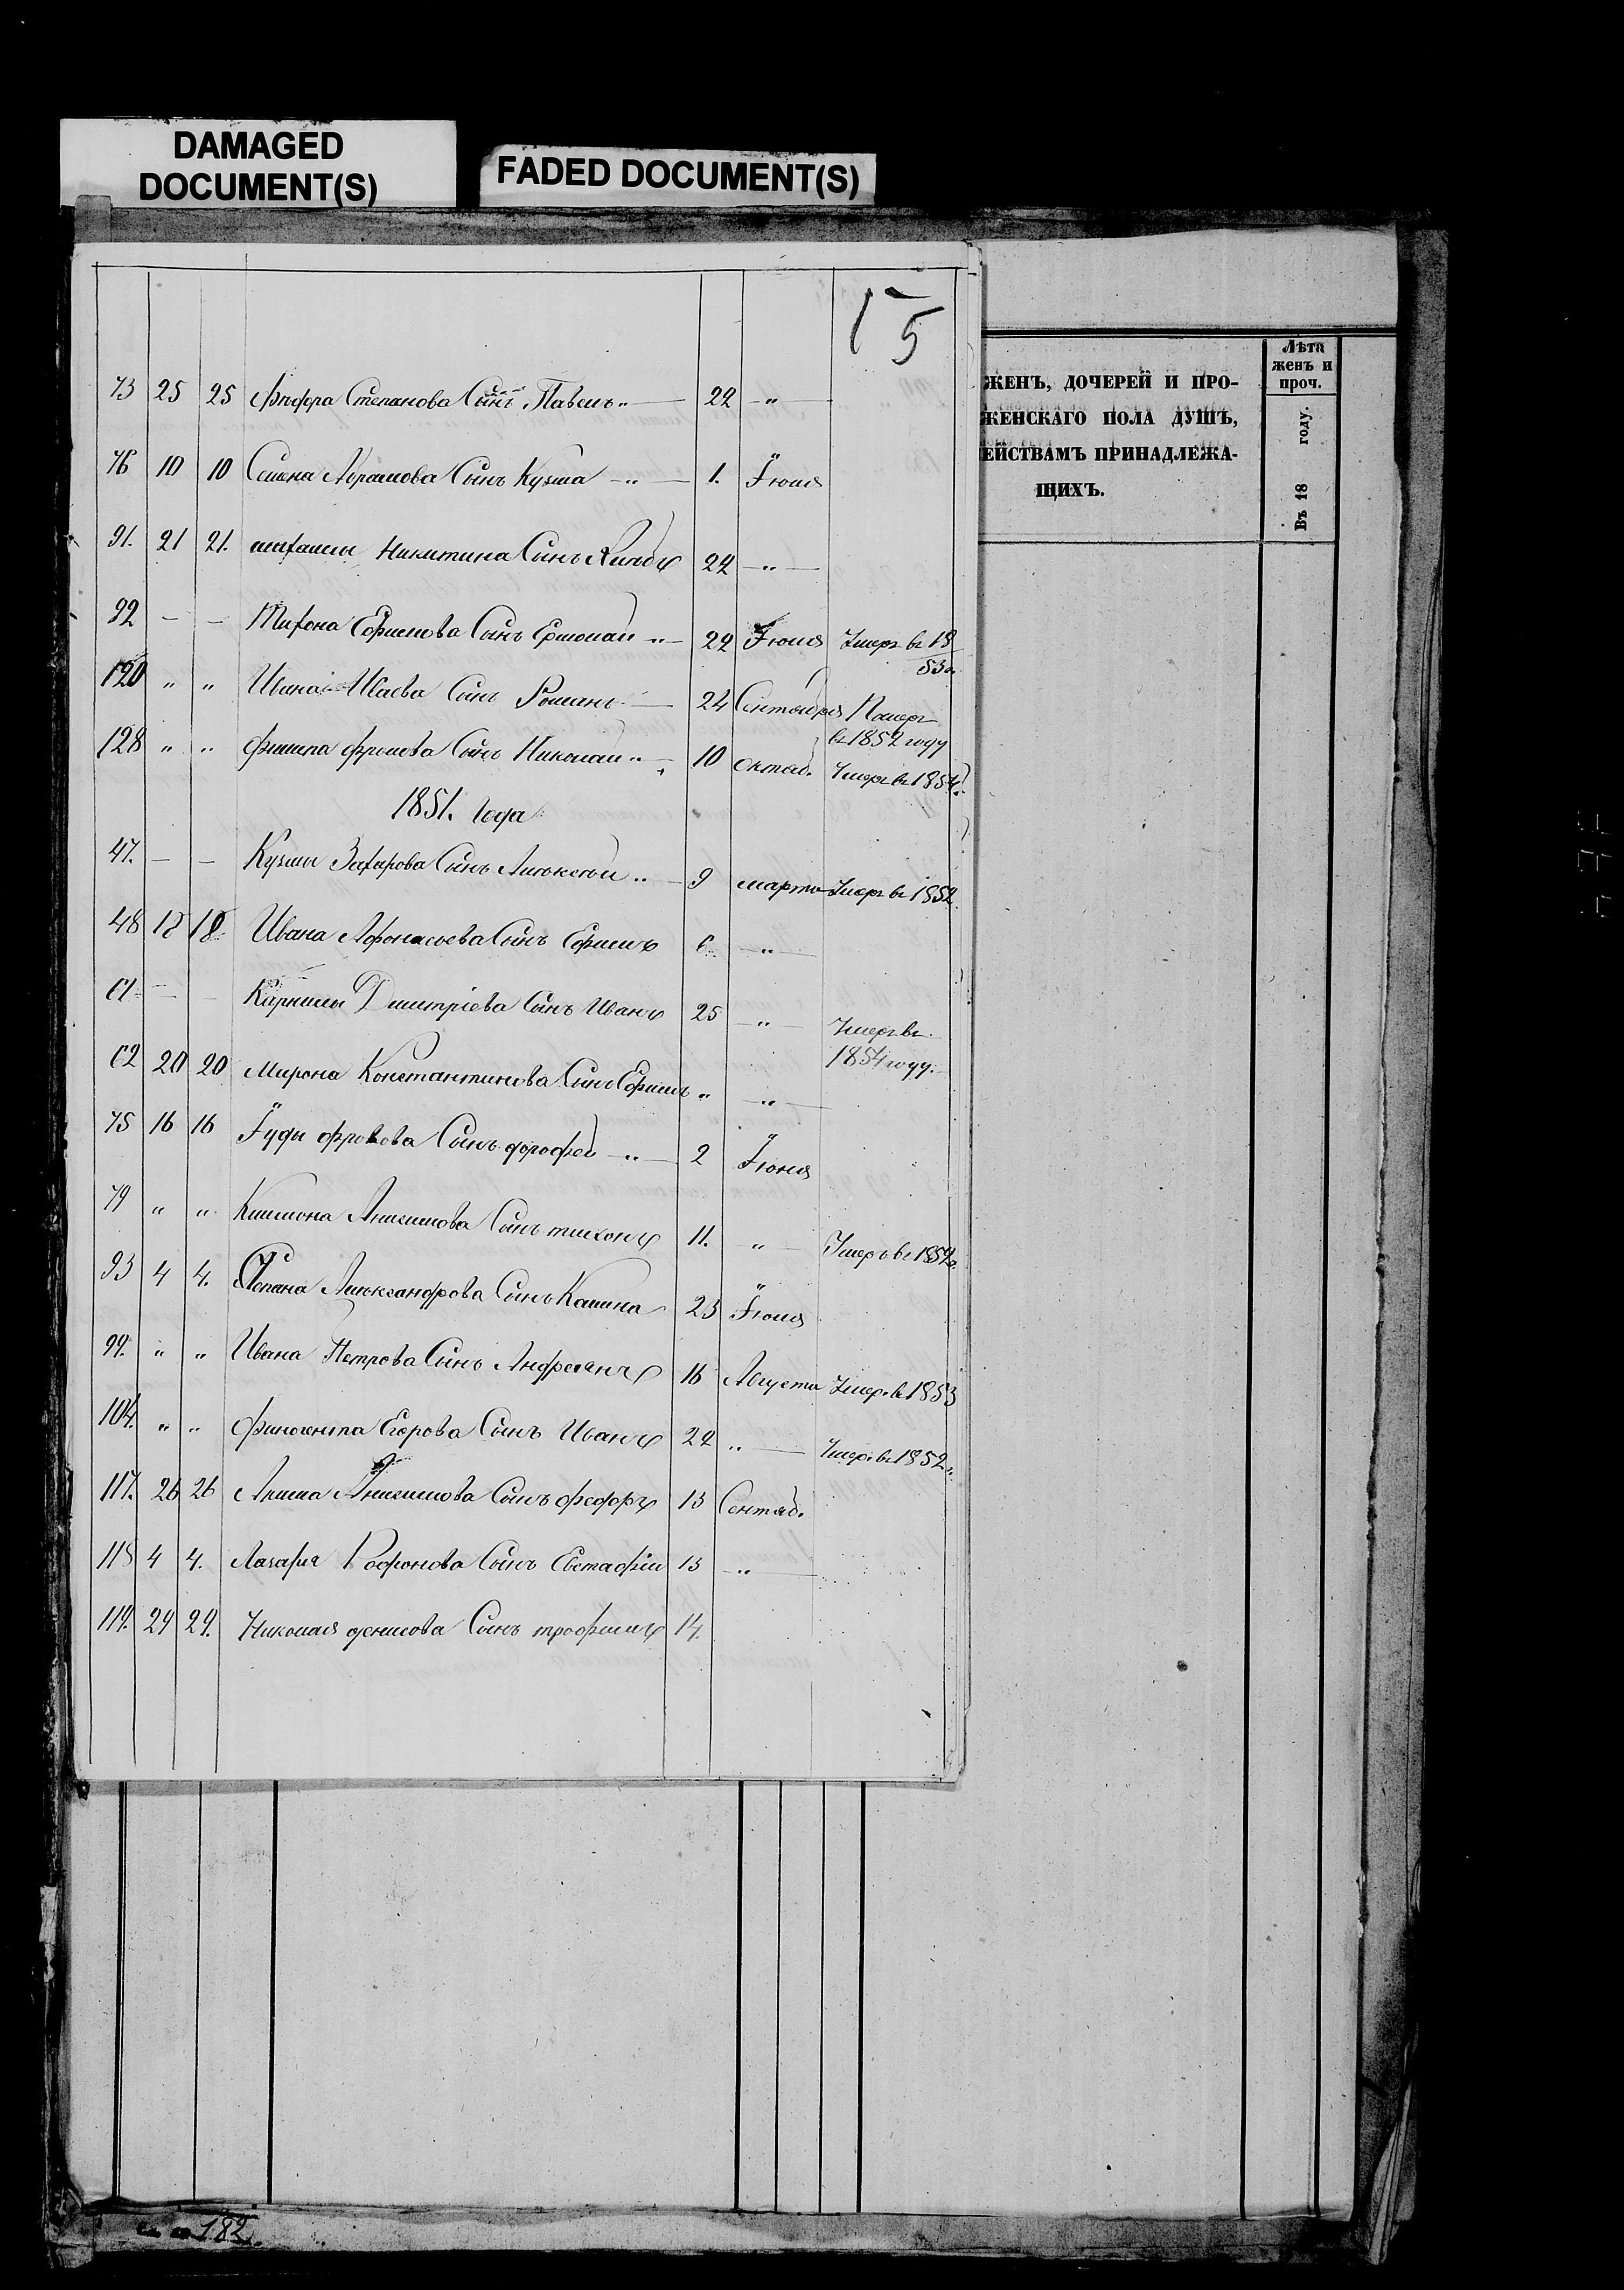 DAMAGED
DOCUMENT(S)
FADED DOCUMENT(S)
15
ЖЕНЪ, ДОЧЕРЕЙ И ПРО-
ЖЕНСКАГО ПОЛА ДУШЪ,
ЕЙСТВАМЪ ПРИНАДЛЕЖА-
ЩИХЪ.
Лѣта
женъ и
проч.
Въ 18 году.
73 25 25 Степанова Сынъ Павелъ „ — 22 — „ —
76 10 10 Семена Абрамова Сынъ Кузма — „ — 1. Іюля
91. 21 21. Никитина Сынъ 22 — „ —
92 — — Тихона Ефимова Сынъ Ермолай „ — 22 Іюля Умеръ въ 18
53г.
120 „ „ Исаева Сынъ Романъ — 24 Сентября Померъ
въ 1852 году
128 „ „ Филипа Фролова Сынъ Николай „ — 10 октяб. Умеръ въ 1854.
1851. Года
47. — — Кузмы Захарова Сынъ Алѣксѣй „ — 9 марта Умеръ въ 1852
48 18 18 Ивана Афонасьева Сынъ Ефимъ 6 — „ —
61 — — Карнилы Дмитріева Сынъ Иванъ 25 — „ — Умеръ въ
1854 году.
62 20 20 Мирона Константинова Сынъ Ефимъ „ — „ —
75 16 16 Іуды Фролова Сынъ дорофей — „ — 2 Іюня
79 „ „ Анисимова Сынъ тихонъ 11. „ — Умеръ въ 1852г.
93 4 4. Степана Алѣксандрова Сынъ Калина 23 Іюля
99. „ „ Ивана Петрова Сынъ Андреянъ 16 Августа Умеръ въ 1853
104. „ „ Филогента Егорова Сынъ Иванъ 22 „ — Умеръ въ 1852г.
117. 26 26 Анисимова Сынъ федоръ 13 Сентяб.
118 4 4. Лазаря Сынъ Евстафій 13 — „ —
119. 29 29. Николая денисова Сынъ трофимъ 14.
182